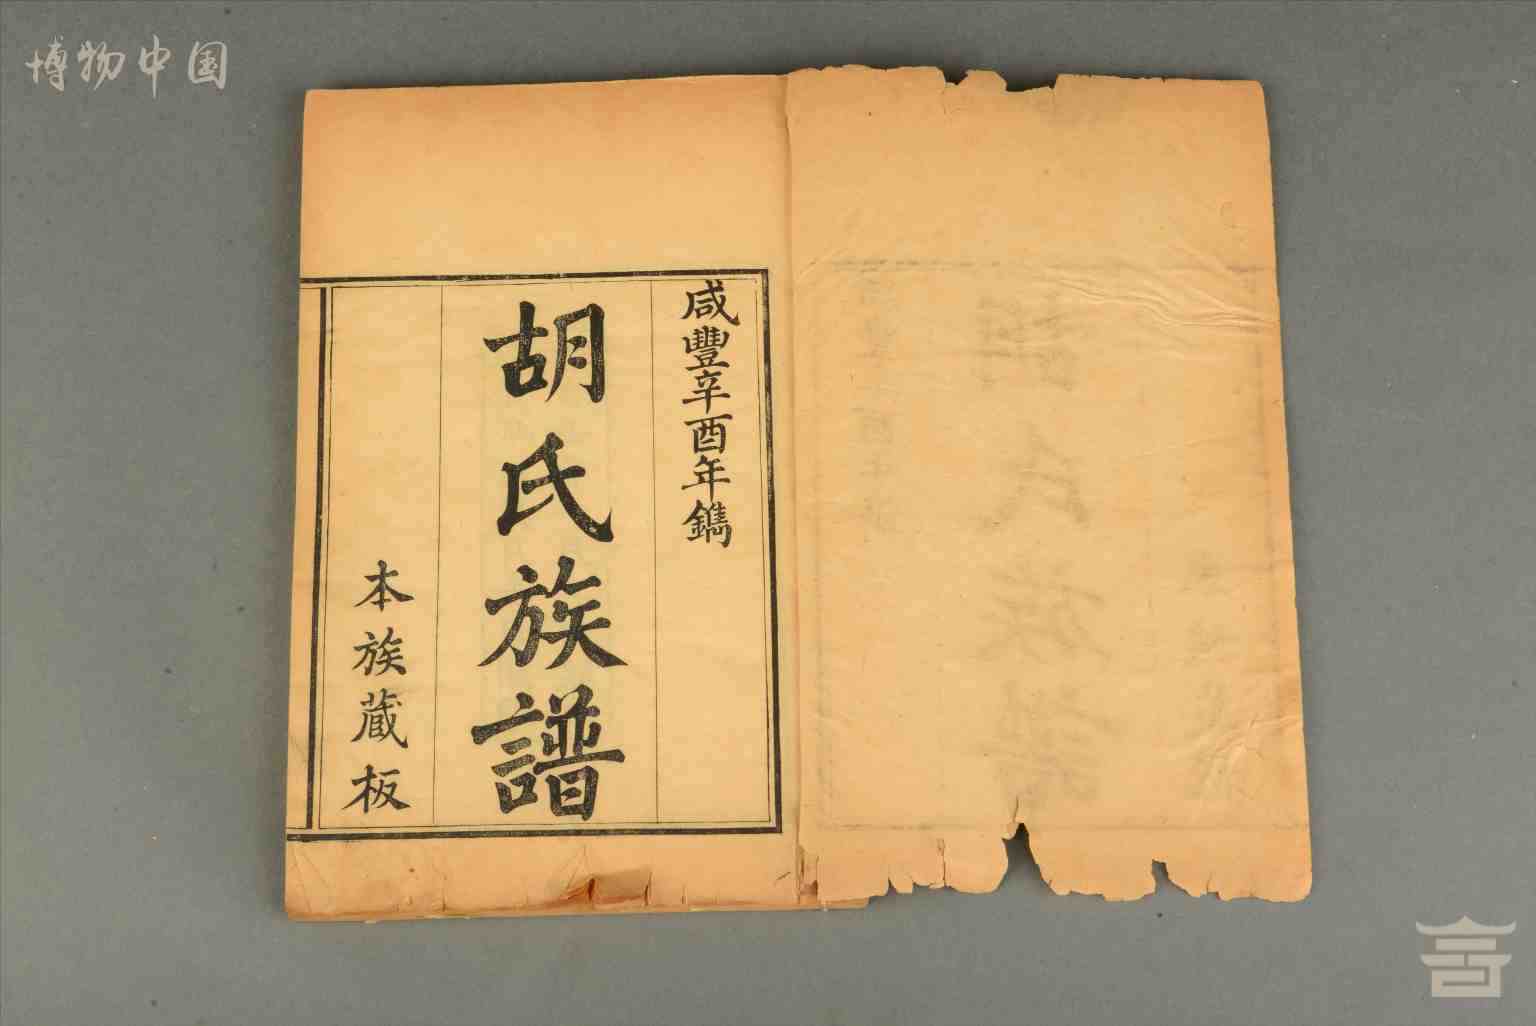 博物中国
咸豐辛酉年鐫
胡氏族譜
本族藏板